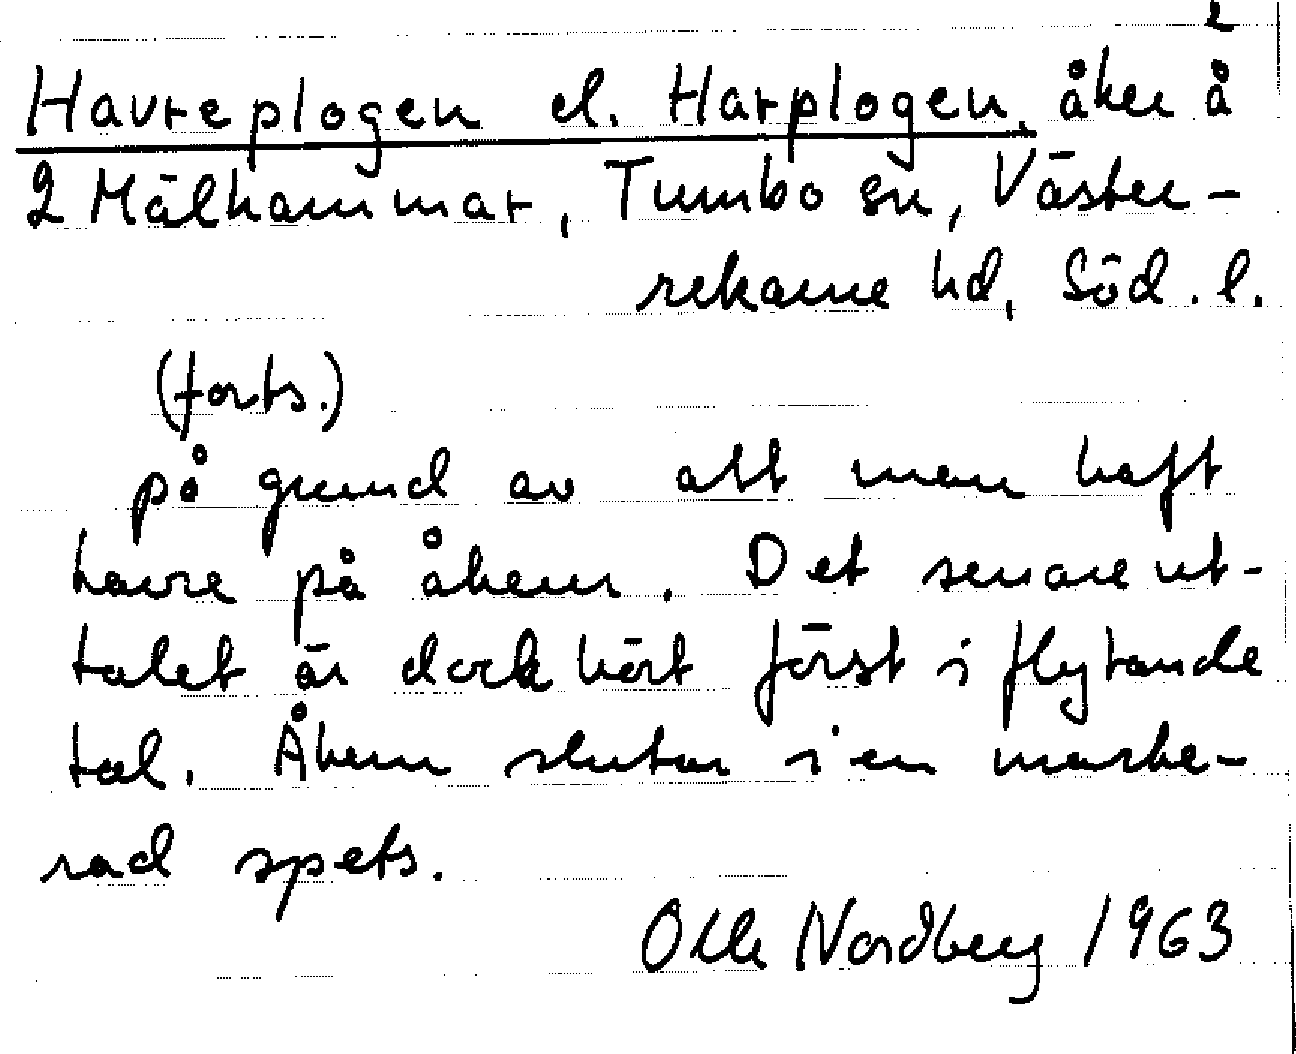 2
Havreplogen el. Harplogen, åker å
2 Mälhammar, Tumbo sn, Väster-
rekarne hd, Söd. l.
(forts.)
på grund av att man haft
havre på åkern. Det senare ut-
talet är dock hört först i flytande
tal. Åkern slutar i en marke-
rad spets.
Olle Nordberg 1963